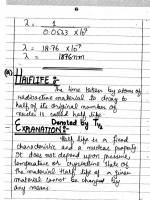 λ = 1
0.0533 × 10⁹
λ = 18.76 × 10⁹
λ = 1876nm
HALFLIFE :-
The time taken by atom of
radioactive material to decay to
half of its original number of
nuclei is called half life
Denoted by T½
EXPLANATION:-
Half life is a fixed
characteristic and a nuclear property
It does not depend upon pressure,
temperature or crystalline state of
the material Half life of a given
material cannot be changed by
any means